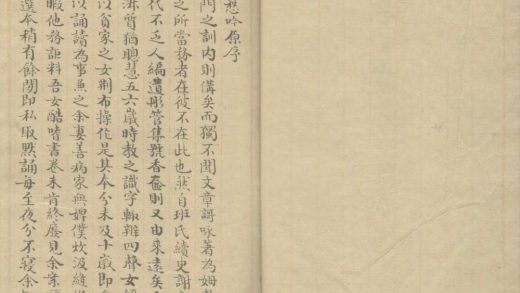 愁吟原序
門之訓內則備矣而獨不聞文章謌咏著為姆教
之所當務者在彼不在此也然自班氏續史謝
代不乏人編遺彤管集號香奩則又由來遠矣
淋質猶聰慧五六歲時教之識字輒辨四聲女
以貧家之女荆布操作是其本分未及十歲即
以誦讀為事無之余妻善病家無婢僕炊汲縫
暇他務詎料吾女酷嗜書卷未肯終廢見余案
選本稍有餘閒即私取默誦每至夜分不寢余